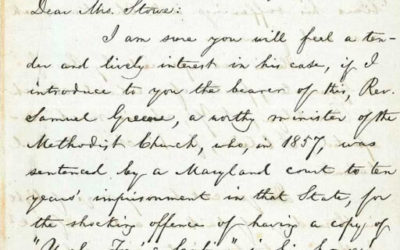 Dear Mrs. Stowe:
I am sure you will feel a ten-
der and lively interest in his case, if I
introduce to you the bearer of this, Rev.
Samuel Greene, a worthy minister of the
Methodist Church, who, in 1857, was
sentenced by a Maryland court to ten
years' imprisonment in that State, for
the shocking offence of having a copy of